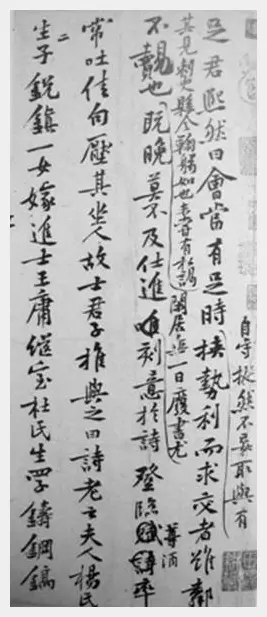 足君熙然曰會當有足時挟勢利而求交者雖鄰
自守 然不妄取與有
其見刺史縣令鞠躬如也未嘗有私謁閑居無一日廢書尤
不覿也既晚莫不及仕進唯刻意於詩登臨賦詩率
尊酒
常吐佳句壓其坐人故士君子推與之曰詩老夫人楊氏
生二子銳鎮一女嫁進士王庸繼室杜氏生四子鑄鋼鎬